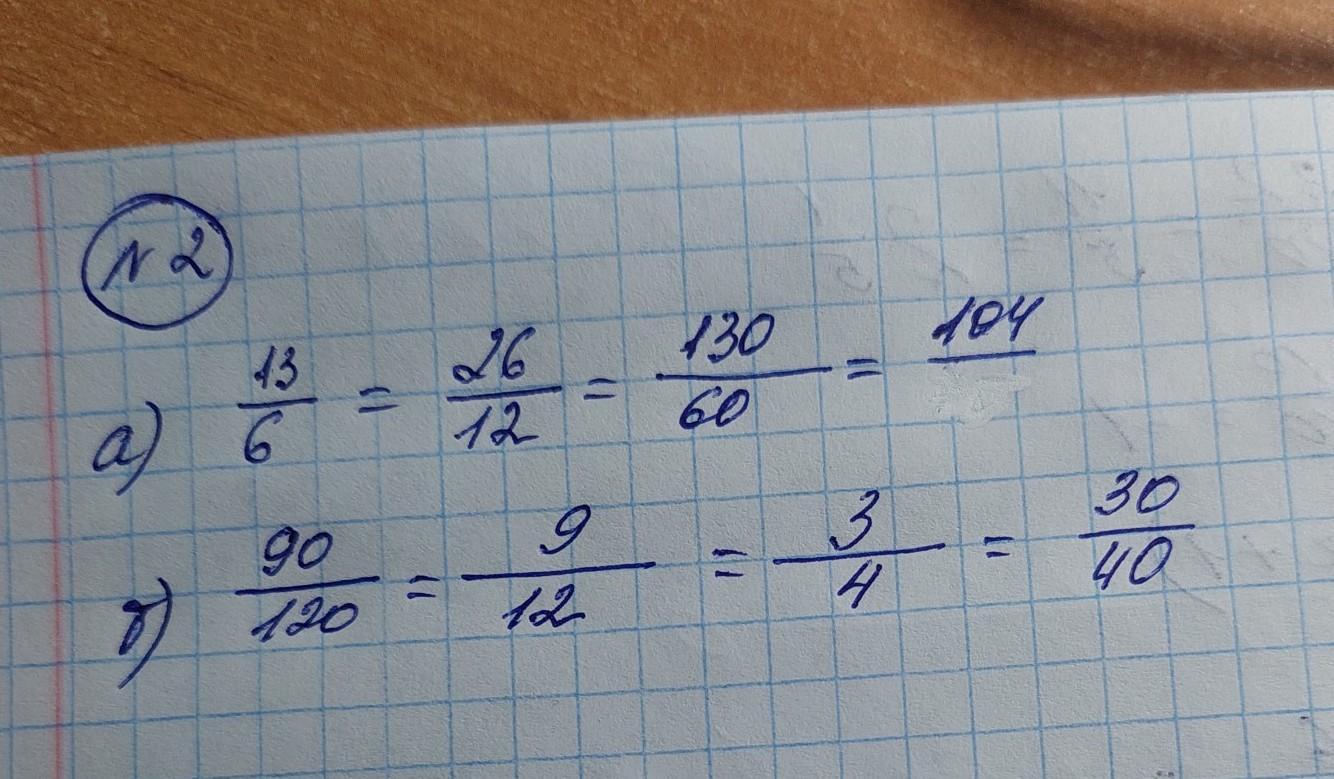 № 2
а) 13/6 = 26/12 = 130/60 = 104/
б) 90/120 = 9/12 = 3/4 = 30/40